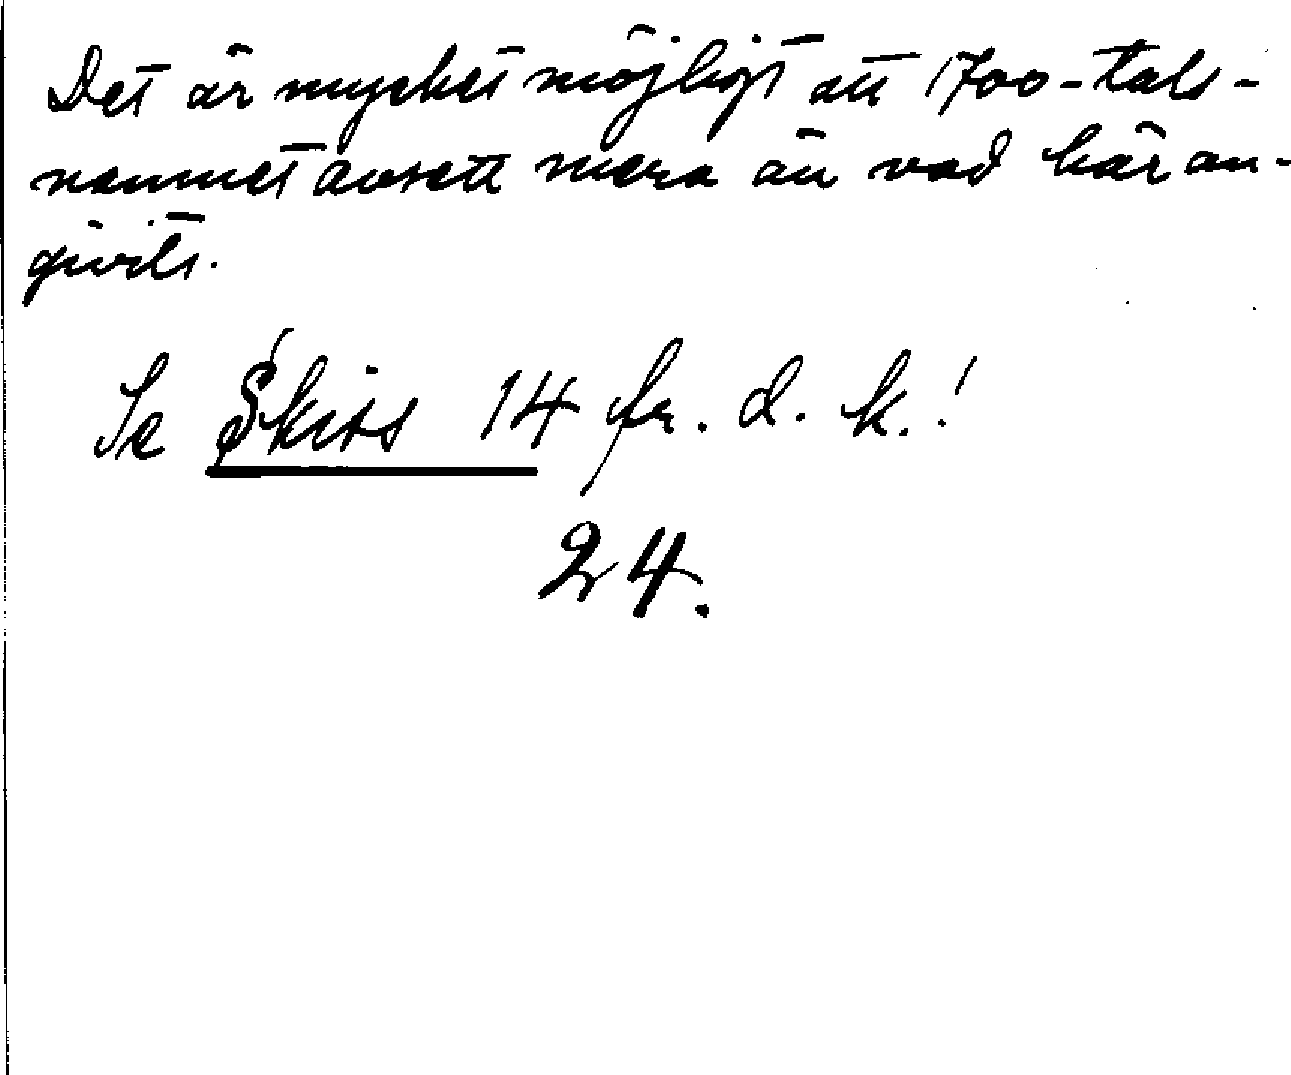 Det är mycket möjligt att 1700-tals-
namnet avsett mera än vad här an-
givits.
Se Skiss 14 fr. d. k.!
24.